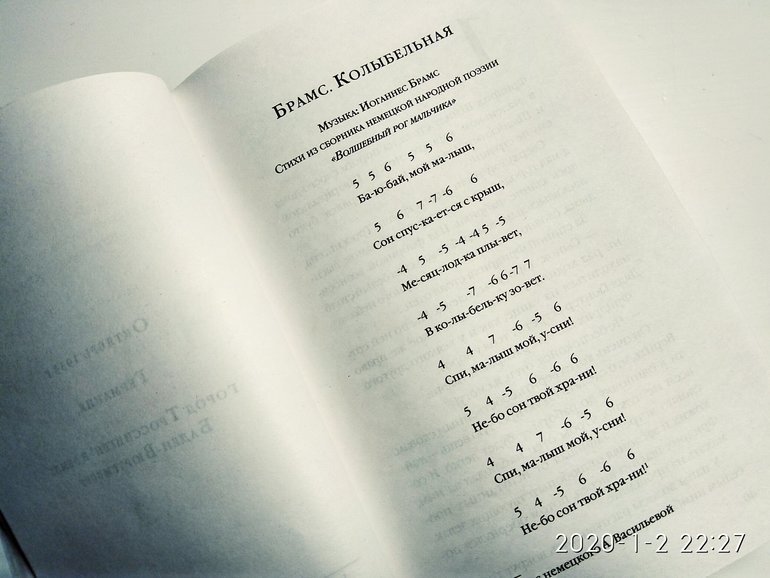 Брамс. Колыбельная
Музыка: Иоганнес Брамс
Стихи из сборника немецкой народной поэзии
«Волшебный рог мальчика»
5 5 6 5 5 6
Ба-ю-бай, мой ма-лыш,
5 6 7 -7 -6 6
Сон спус-ка-ет-ся с крыш,
-4 5 -5 -4 -4 5 -5
Ме-сяц-лод-ка плы-вет,
-4 -5 -7 -6 6 -7 7
В ко-лы-бель-ку зо-вет.
4 4 7 -6 -5 6
Спи, ма-лыш мой, у-сни!
5 4 -5 6 -6 6
Не-бо сон твой хра-ни!
4 4 7 -6 -5 6
Спи, ма-лыш мой, у-сни!
5 4 -5 6 -6 6
Не-бо сон твой хра-ни!¹
с немецкого А. Васильевой
2020-1-2 22:27